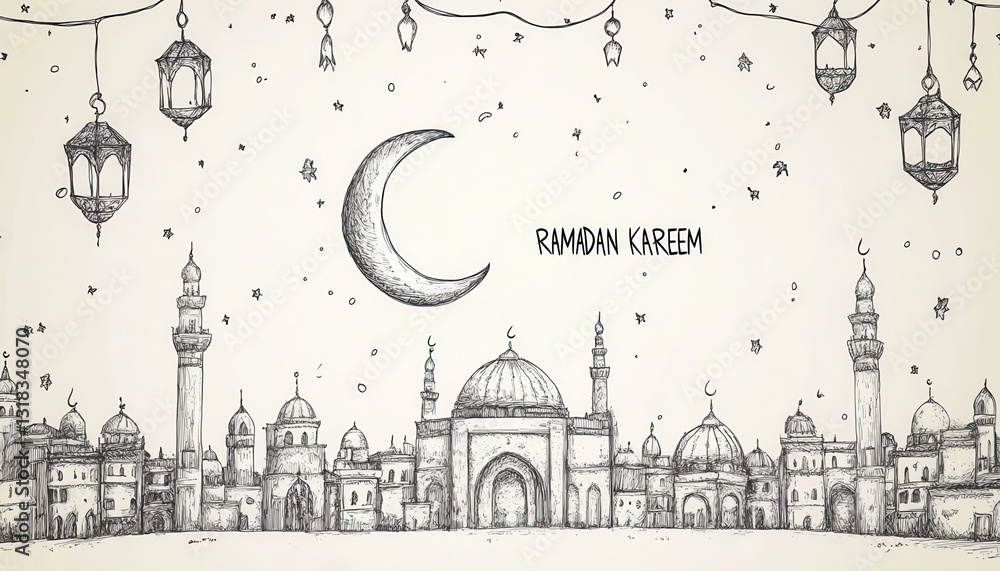 RAMADAN KAREEM
Adobe Stock | #1318348070